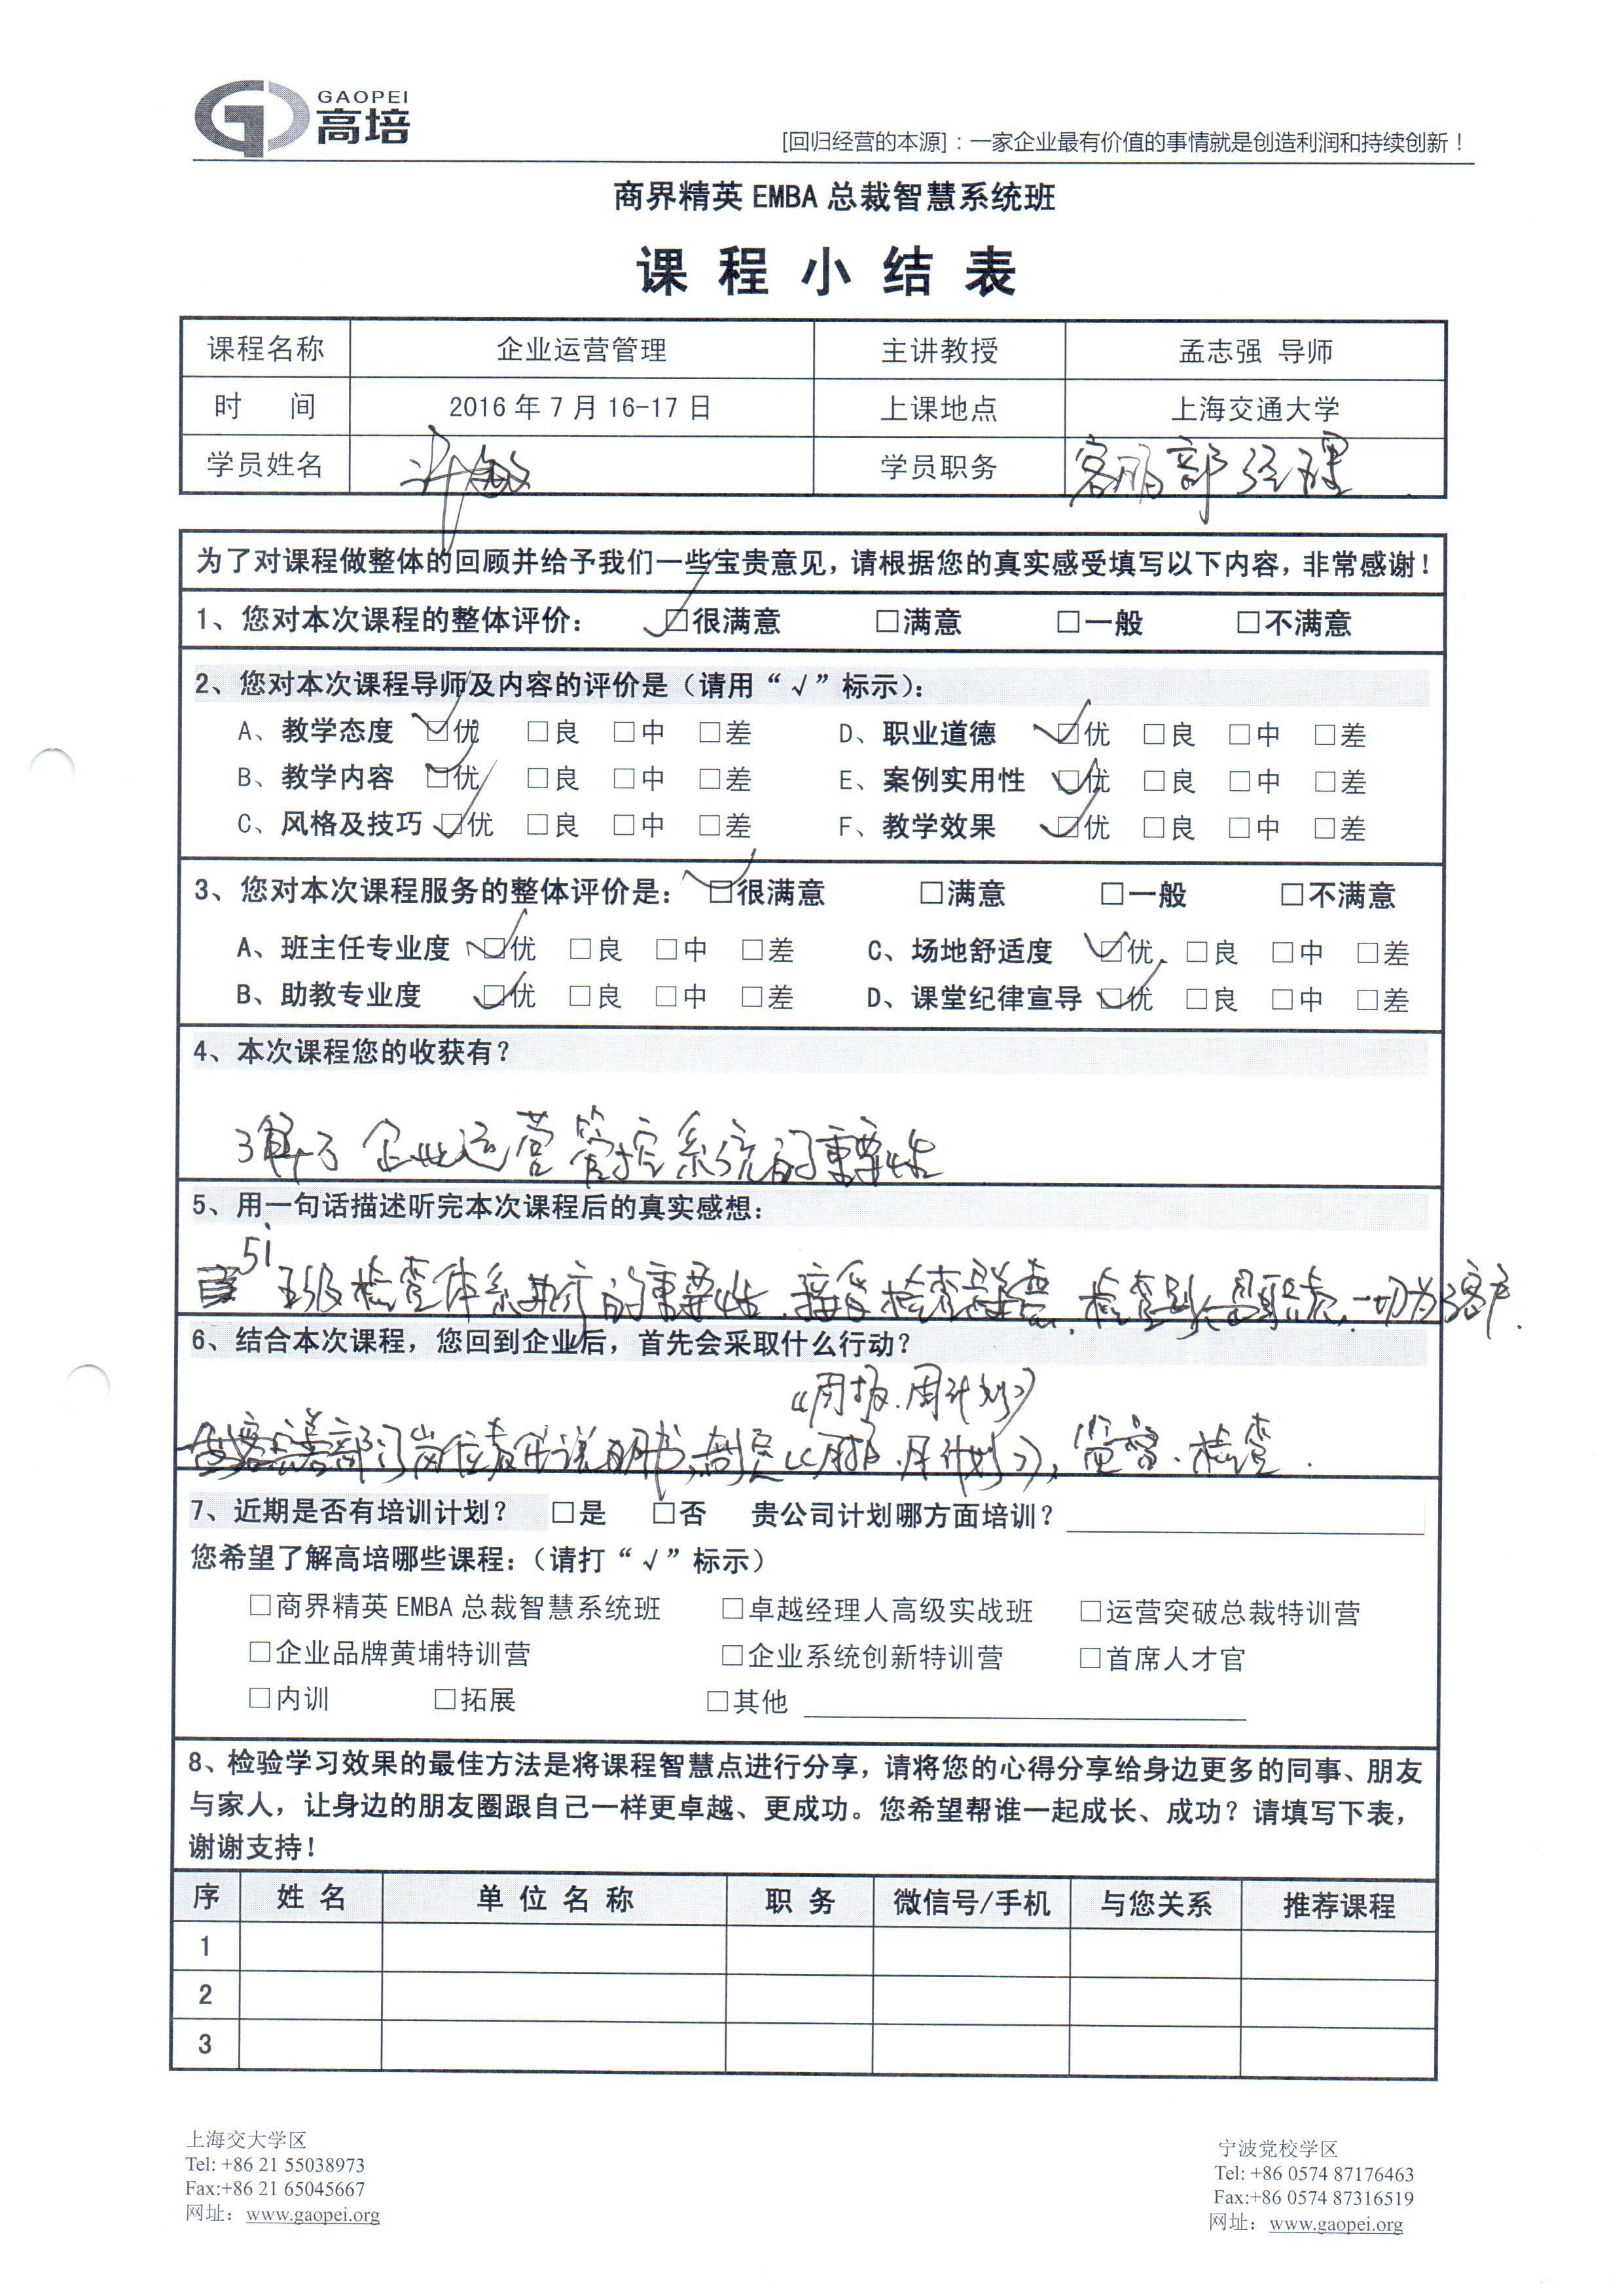 GAOPEI
高培
[回归经营的本源]：一家企业最有价值的事情就是创造利润和持续创新！
商界精英 EMBA 总裁智慧系统班
课 程 小 结 表
课程名称 企业运营管理 主讲教授 孟志强 导师
时 间 2016 年 7 月 16-17 日 上课地点 上海交通大学
学员姓名 许敏 学员职务 客服部经理
为了对课程做整体的回顾并给予我们一些宝贵意见，请根据您的真实感受填写以下内容，非常感谢！
1、您对本次课程的整体评价： ☑很满意 □满意 □一般 □不满意
2、您对本次课程导师及内容的评价是（请用“√”标示）：
A、教学态度 ☑优 □良 □中 □差 D、职业道德 ☑优 □良 □中 □差
B、教学内容 ☑优 □良 □中 □差 E、案例实用性 ☑优 □良 □中 □差
C、风格及技巧 ☑优 □良 □中 □差 F、教学效果 ☑优 □良 □中 □差
3、您对本次课程服务的整体评价是： ☑很满意 □满意 □一般 □不满意
A、班主任专业度 ☑优 □良 □中 □差 C、场地舒适度 ☑优 □良 □中 □差
B、助教专业度 ☑优 □良 □中 □差 D、课堂纪律宣导 ☑优 □良 □中 □差
4、本次课程您的收获有？
了解了企业运营管控系统的重要性
5、用一句话描述听完本次课程后的真实感想：
5i 检查体系 的重要性 接受检查是 检查别人是职责 一切为了客户.
6、结合本次课程，您回到企业后，首先会采取什么行动？
《周报.周计划》
部门岗位责任说明书, 《月报.月计划》, 监督、检查.
7、近期是否有培训计划？ □是 □否 贵公司计划哪方面培训？
您希望了解高培哪些课程：（请打“√”标示）
□商界精英 EMBA 总裁智慧系统班 □卓越经理人高级实战班 □运营突破总裁特训营
□企业品牌黄埔特训营 □企业系统创新特训营 □首席人才官
□内训 □拓展 □其他
8、检验学习效果的最佳方法是将课程智慧点进行分享，请将您的心得分享给身边更多的同事、朋友
与家人，让身边的朋友圈跟自己一样更卓越、更成功。您希望帮谁一起成长、成功？请填写下表，
谢谢支持！
序 姓 名 单 位 名 称 职 务 微信号/手机 与您关系 推荐课程
1
2
3
上海交大学区
Tel: +86 21 55038973
Fax:+86 21 65045667
网址：www.gaopei.org
宁波党校学区
Tel: +86 0574 87176463
Fax:+86 0574 87316519
网址：www.gaopei.org